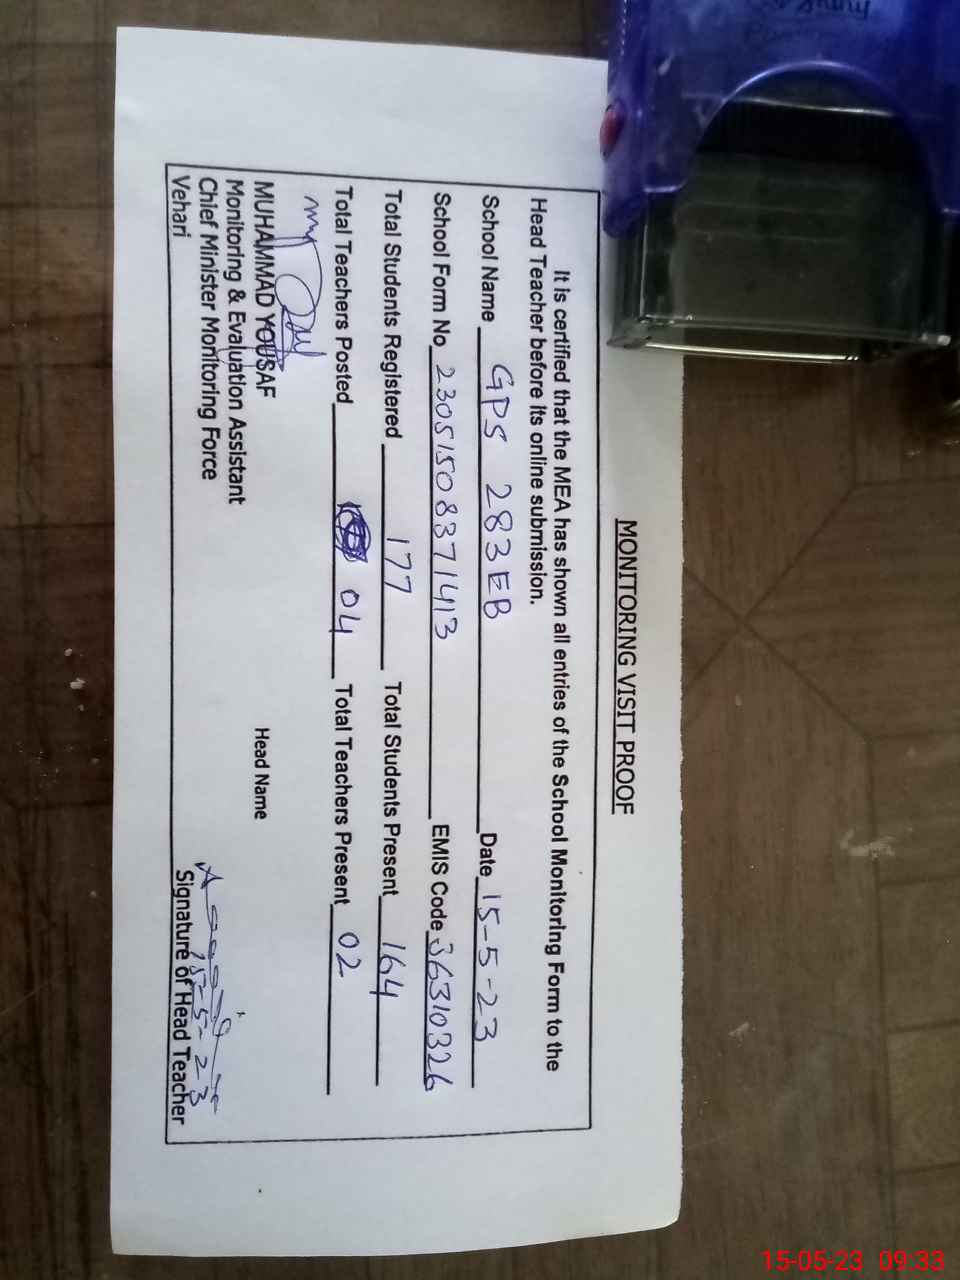 MONITORING VISIT PROOF
It is certified that the MEA has shown all entries of the School Monitoring Form to the
Head Teacher before its online submission.
School Name GPS 283EB Date 15-5-23
School Form No 23051508371413 EMIS Code 36310326
Total Students Registered 177 Total Students Present 164
Total Teachers Posted 04 Total Teachers Present 02
MUHAMMAD YOUSAF
Monitoring & Evaluation Assistant
Chief Minister Monitoring Force
Vehari
Head Name
15-5-23
Signature of Head Teacher
15-05-23 09:33